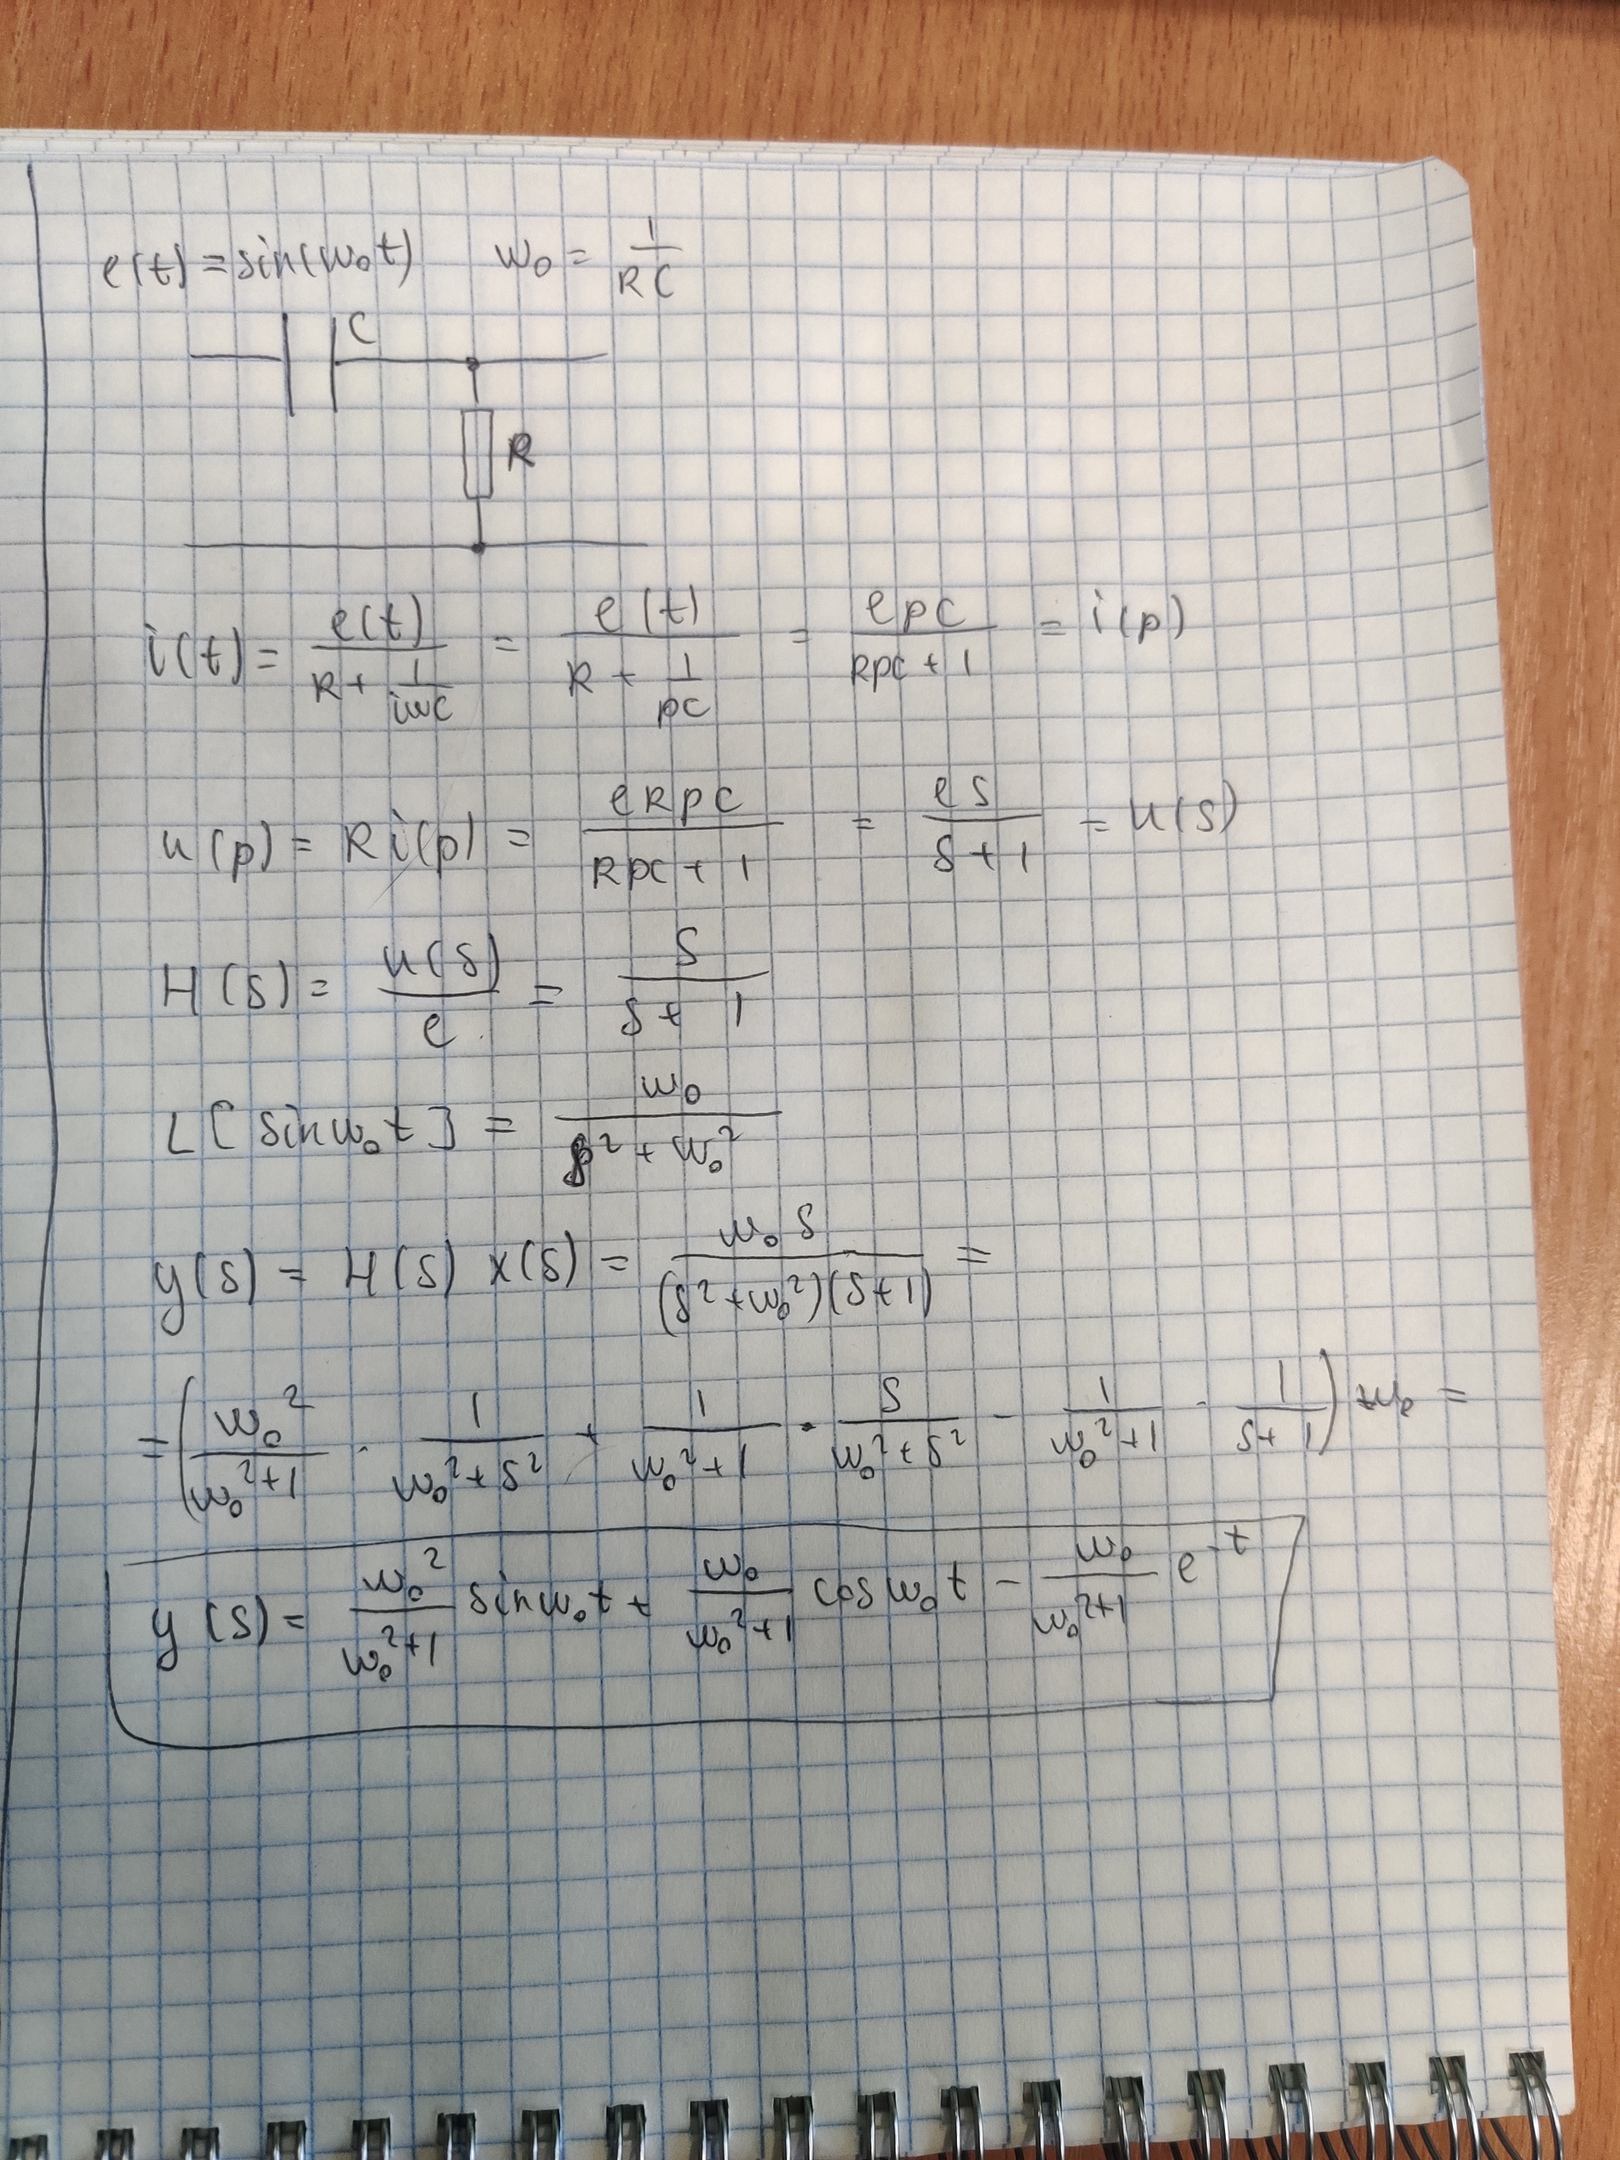 e(t) = sin(w₀t) w₀ = 1/RC
C
R
i(t) = e(t)/(R + 1/(iwC)) = e(t)/(R + 1/(pC)) = epC/(RpC + 1) = i(p)
u(p) = R i(p) = eRpC/(RpC + 1) = es/(s + 1) = u(s)
H(s) = u(s)/e = s/(s + 1)
L[sin w₀t] = w₀/(p² + w₀²)
y(s) = H(s) x(s) = w₀s/((s² + w₀²)(s + 1)) =
= (w₀²/(w₀² + 1) · 1/(w₀² + s²) + 1/(w₀² + 1) · s/(w₀² + s²) − 1/(w₀² + 1) · 1/(s + 1)) w₀ =
y(s) = w₀²/(w₀² + 1) sin w₀t + w₀/(w₀² + 1) cos w₀t − w₀/(w₀² + 1) e^(−t)